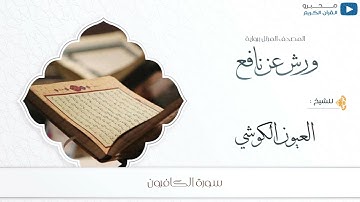 محبرو
القرآن الكريم
المصحف المنزل برواية
ورش عن نافع
للشيخ :
العيون الكوشي
سورة الكافرون